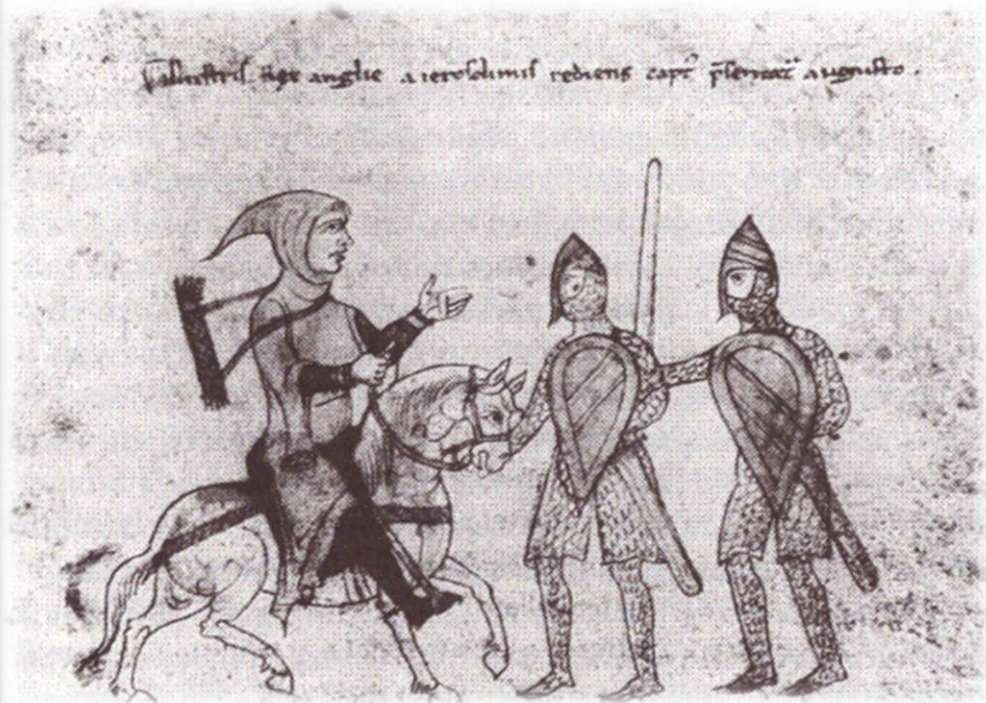 illustris rex anglie a ierosolimis rediens capt᷒ p̄sentat᷒ augusto.